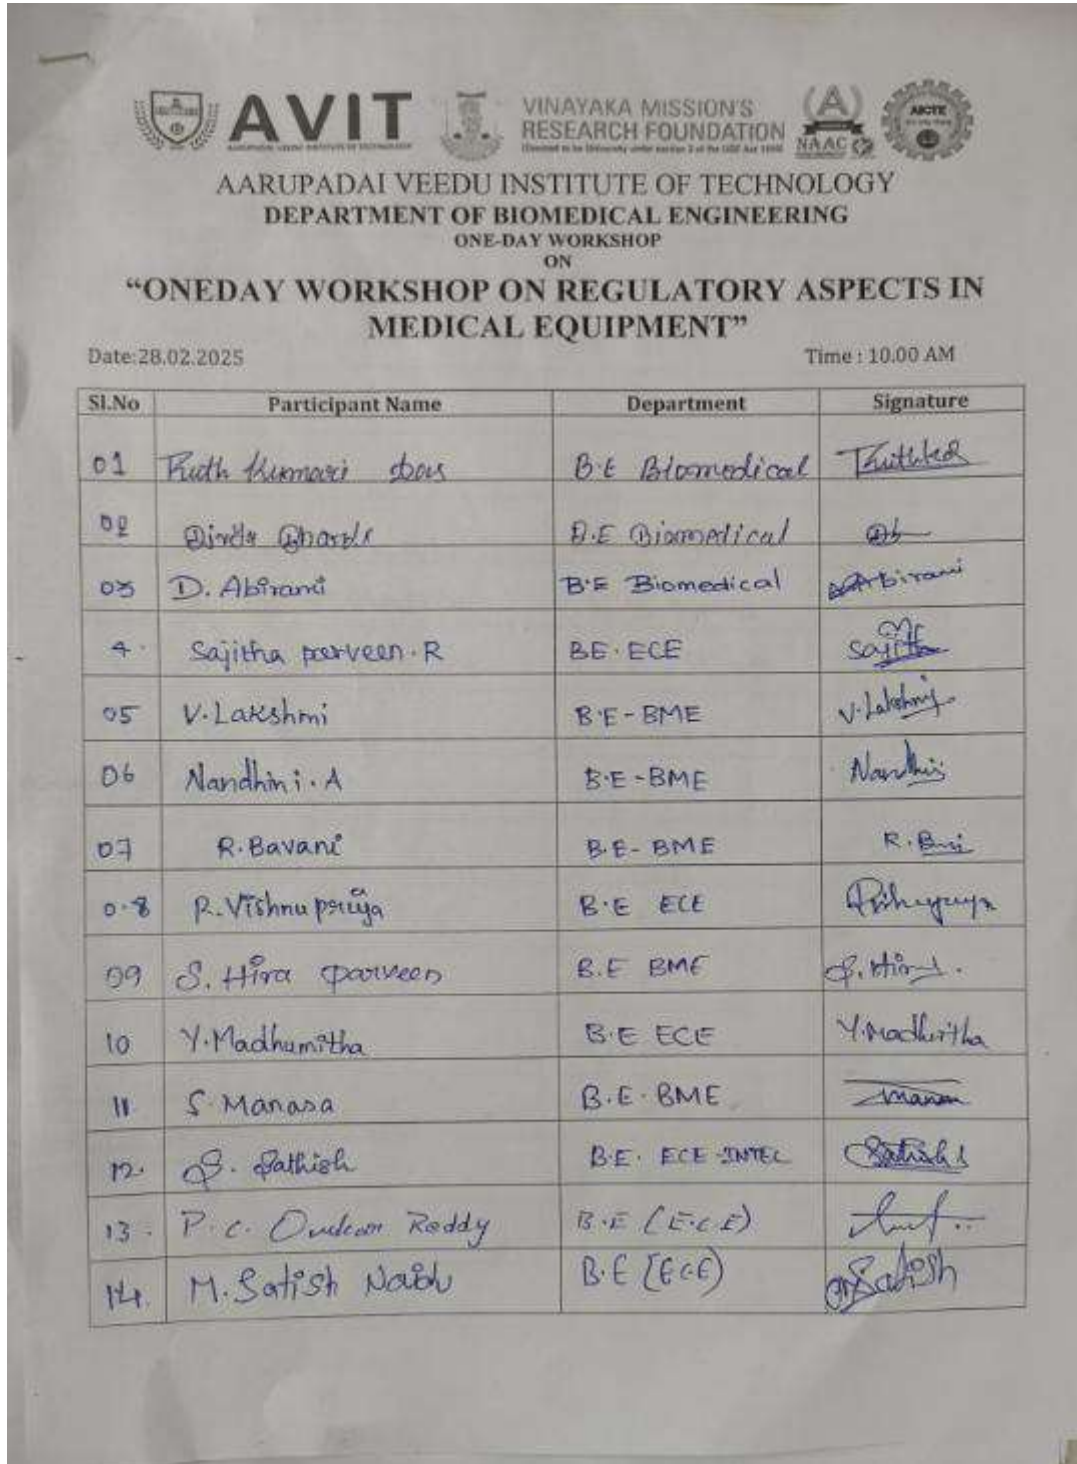 AVIT
AARUPADAI VEEDU INSTITUTE OF TECHNOLOGY
VINAYAKA MISSION'S
RESEARCH FOUNDATION
(Deemed to be University under section 3 of the UGC Act 1956)
NAAC
AICTE
AARUPADAI VEEDU INSTITUTE OF TECHNOLOGY
DEPARTMENT OF BIOMEDICAL ENGINEERING
ONE-DAY WORKSHOP
ON
“ONEDAY WORKSHOP ON REGULATORY ASPECTS IN
MEDICAL EQUIPMENT”
Date:28.02.2025 Time : 10.00 AM
Sl.No Participant Name Department Signature
01 Ruth Kumari Das B.E Biomedical
02 B.E Biomedical
03 D. Abirami B.E Biomedical Abirami
4. Sajitha parveen.R BE.ECE Sajitha
05 V.Lakshmi B.E-BME V.Lakshmi
06 Nandhini.A B.E-BME Nandhini
07 R.Bavani B.E-BME R.
0.8 R.Vishnupriya B.E ECE
09 S. Hira parveen B.E BME S. Hira
10 Y.Madhumitha B.E ECE Y.Madhitha
11 S. Manasa B.E.BME Manasa
12. S. Sathish B.E. ECE-INTEL Sathish S
13. P.C. Reddy B.E (E.C.E)
14. M.Satish Naidu B.E [ECE) Satish